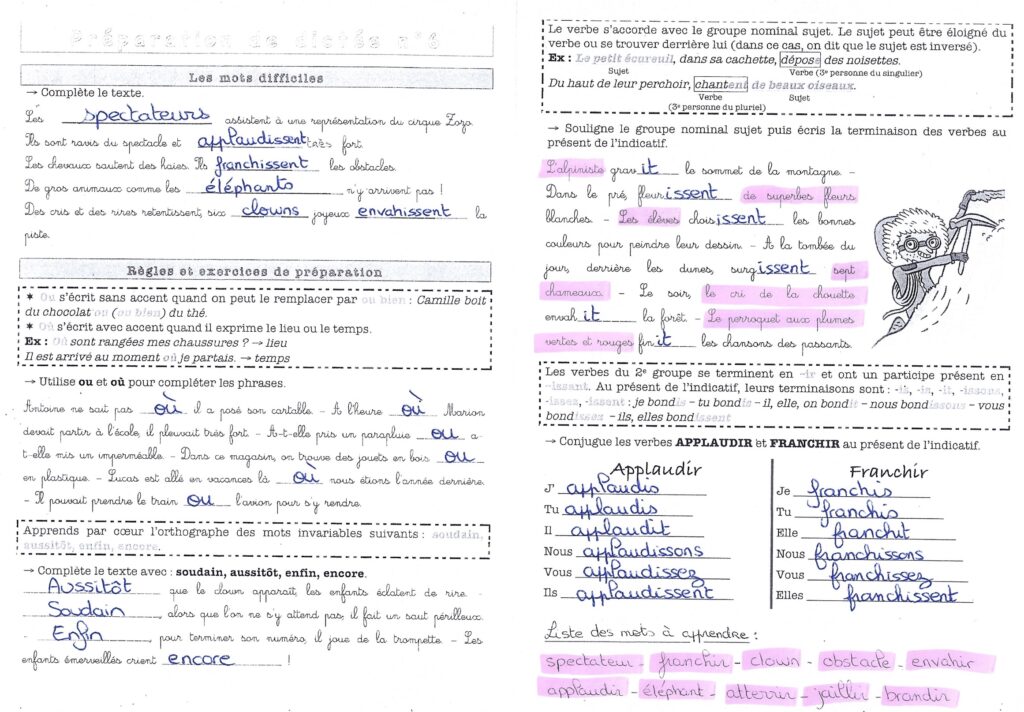 Préparation de dictée n°6
Les mots difficiles
→ Complète le texte.
Les spectateurs assistent à une représentation du cirque Zozo.
Ils sont ravis du spectacle et applaudissent très fort.
Les chevaux sautent des haies. Ils franchissent les obstacles.
De gros animaux comme les éléphants n'y arrivent pas !
Des cris et des rires retentissent, six clowns joyeux envahissent la
piste.
Règles et exercices de préparation
* Ou s'écrit sans accent quand on peut le remplacer par ou bien : Camille boit
du chocolat ou (ou bien) du thé.
* Où s'écrit avec accent quand il exprime le lieu ou le temps.
Ex : Où sont rangées mes chaussures ? → lieu
Il est arrivé au moment où je partais. → temps
→ Utilise ou et où pour compléter les phrases.
Antoine ne sait pas où il a posé son cartable. - A l'heure où Marion
devait partir à l'école, il pleuvait très fort. - A-t-elle pris un parapluie ou a-
t-elle mis un imperméable. - Dans ce magasin, on trouve des jouets en bois ou
en plastique. - Lucas est allé en vacances là où nous étions l'année dernière.
- Il pouvait prendre le train ou l'avion pour s'y rendre.
Apprends par cœur l'orthographe des mots invariables suivants : soudain,
aussitôt, enfin, encore.
→ Complète le texte avec : soudain, aussitôt, enfin, encore.
Aussitôt que le clown apparaît les enfants éclatent de rire. -
Soudain, alors que l'on ne s'y attend pas, il fait un saut périlleux.
- Enfin, pour terminer son numéro, il joue de la trompette. - Les
enfants émerveillés crient encore !
Le verbe s'accorde avec le groupe nominal sujet. Le sujet peut être éloigné du
verbe ou se trouver derrière lui (dans ce cas, on dit que le sujet est inversé).
Ex : Le petit écureuil, dans sa cachette, dépose des noisettes.
Sujet Verbe (3e personne du singulier)
Du haut de leur perchoir, chantent de beaux oiseaux.
Verbe Sujet
(3e personne du pluriel)
→ Souligne le groupe nominal sujet puis écris la terminaison des verbes au
présent de l'indicatif.
L'alpiniste gravit le sommet de la montagne. -
Dans le pré, fleurissent de superbes fleurs
blanches. - Les élèves choisissent les bonnes
couleurs pour peindre leur dessin. - A la tombée du
jour, derrière les dunes, surgissent sept
chameaux. - Le soir, le cri de la chouette
envahit la forêt. - Le perroquet aux plumes
vertes et rouges finit les chansons des passants.
Les verbes du 2e groupe se terminent en -ir et ont un participe présent en
-issant. Au présent de l'indicatif, leurs terminaisons sont : -is, -is, -it, -issons,
-issez, -issent : je bondis - tu bondis - il, elle, on bondit - nous bondissons - vous
bondissez - ils, elles bondissent
→ Conjugue les verbes APPLAUDIR et FRANCHIR au présent de l'indicatif.
Applaudir
J' applaudis
Tu applaudis
Il applaudit
Nous applaudissons
Vous applaudissez
Ils applaudissent
Franchir
Je franchis
Tu franchis
Elle franchit
Nous franchissons
Vous franchissez
Elles franchissent
Liste des mots à apprendre :
spectateur - franchir - clown - obstacle - envahir
applaudir - éléphant - atterrir - jaillir - brandir